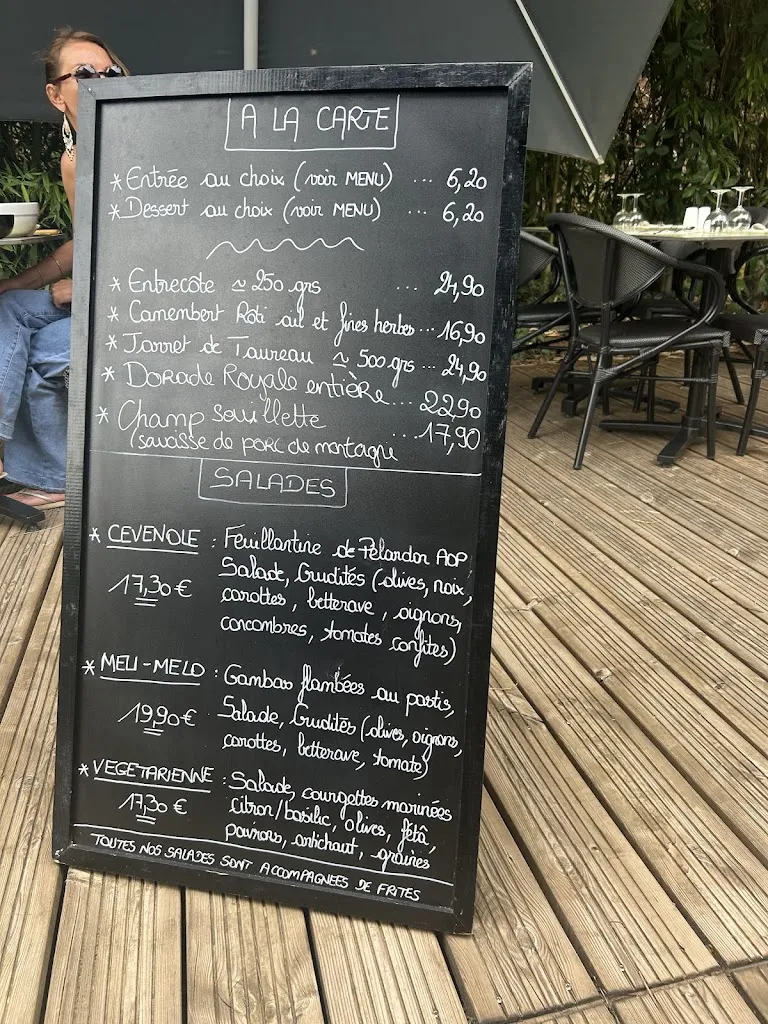 A LA CARTE
* Entrée au choix (voir MENU) ... 6,20
* Dessert au choix (voir MENU) ... 6,20
* Entrecôte ≃ 250 grs ... 24,90
* Camembert Roti ail et fines herbes ... 16,90
* Jarret de Taureau ≃ 500 grs ... 24,90
* DORADE ROYALE entiÈRe ... 22,90
* Champ souillette ... 17,90
(saucisse de porc de montagne
SALADES
* CEVENOLE : Feuillantine de Pelardon AOP
17,30 € Salade, Crudités (olives, noix,
carottes, betterave, oignons,
concombres, tomates confites)
* MELI-MELO : Gambas flambées au pastis,
19,90 € Salade, Crudités (olives, oignons,
carottes, betterave, tomate)
* VEGETARIENNE : Salade, courgettes marinées
17,30 € citron/basilic, olives, fêtâ,
poivrons, antichaut, graines
TOUTES NOS SALADES SONT ACCOMPAGNEES DE FRITES